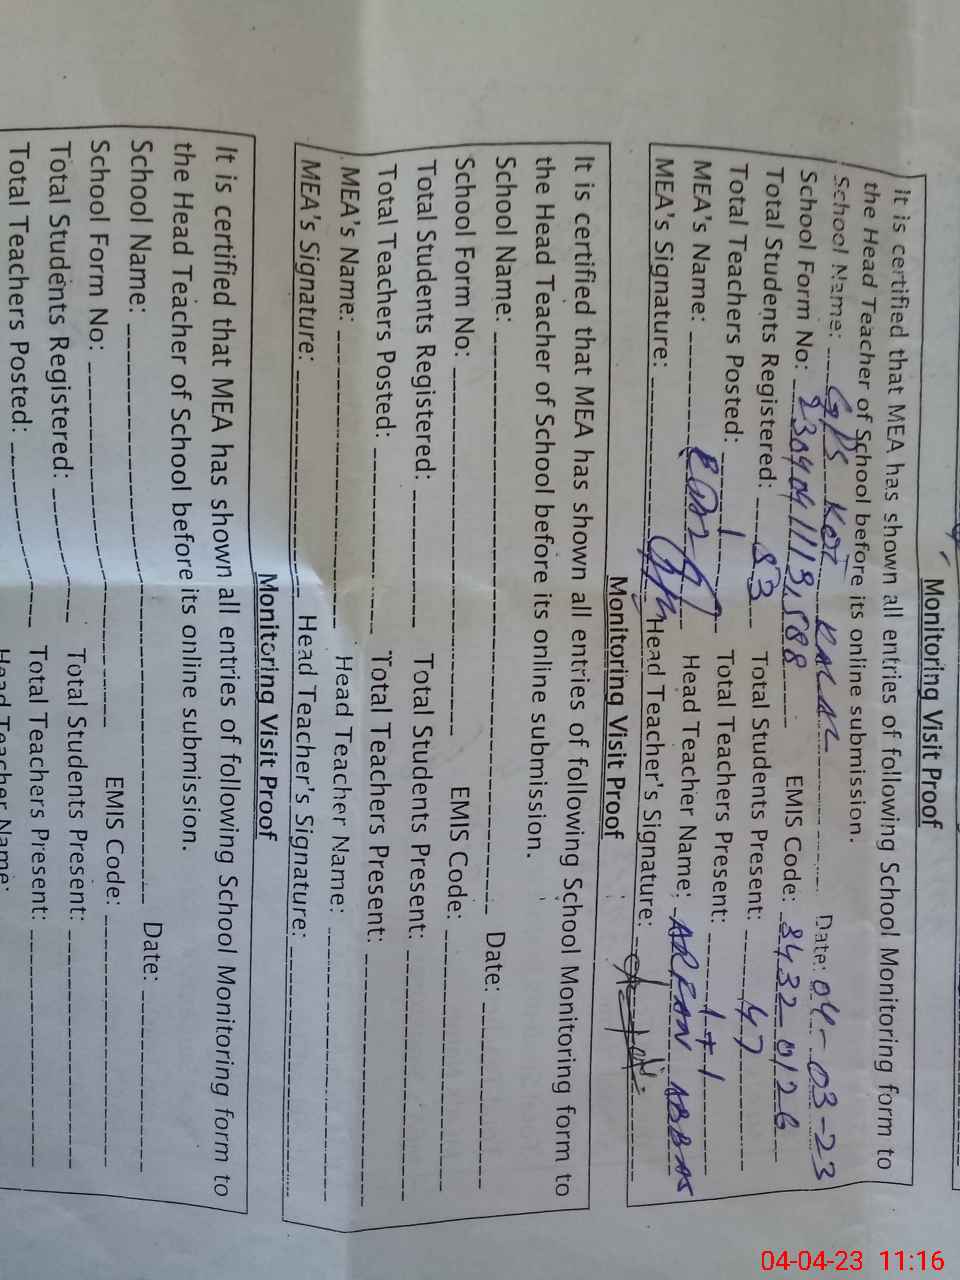 Monitoring Visit Proof
It is certified that MEA has shown all entries of following School Monitoring form to
the Head Teacher of School before its online submission.
School Name: GPS KOT Date: 04-03-23
School Form No: EMIS Code: 34320126
Total Students Registered: 83 Total Students Present: 47
Total Teachers Posted: 1 Total Teachers Present: 1+1
MEA's Name: Head Teacher Name: ABBAS
MEA's Signature: Head Teacher's Signature:
Monitoring Visit Proof
It is certified that MEA has shown all entries of following School Monitoring form to
the Head Teacher of School before its online submission.
School Name: Date:
School Form No: EMIS Code:
Total Students Registered: Total Students Present:
Total Teachers Posted: Total Teachers Present:
MEA's Name: Head Teacher Name:
MEA's Signature: Head Teacher's Signature:
Monitoring Visit Proof
It is certified that MEA has shown all entries of following School Monitoring form to
the Head Teacher of School before its online submission.
School Name: Date:
School Form No: EMIS Code:
Total Students Registered: Total Students Present:
Total Teachers Posted: Total Teachers Present:
Head Teacher Name:
04-04-23 11:16